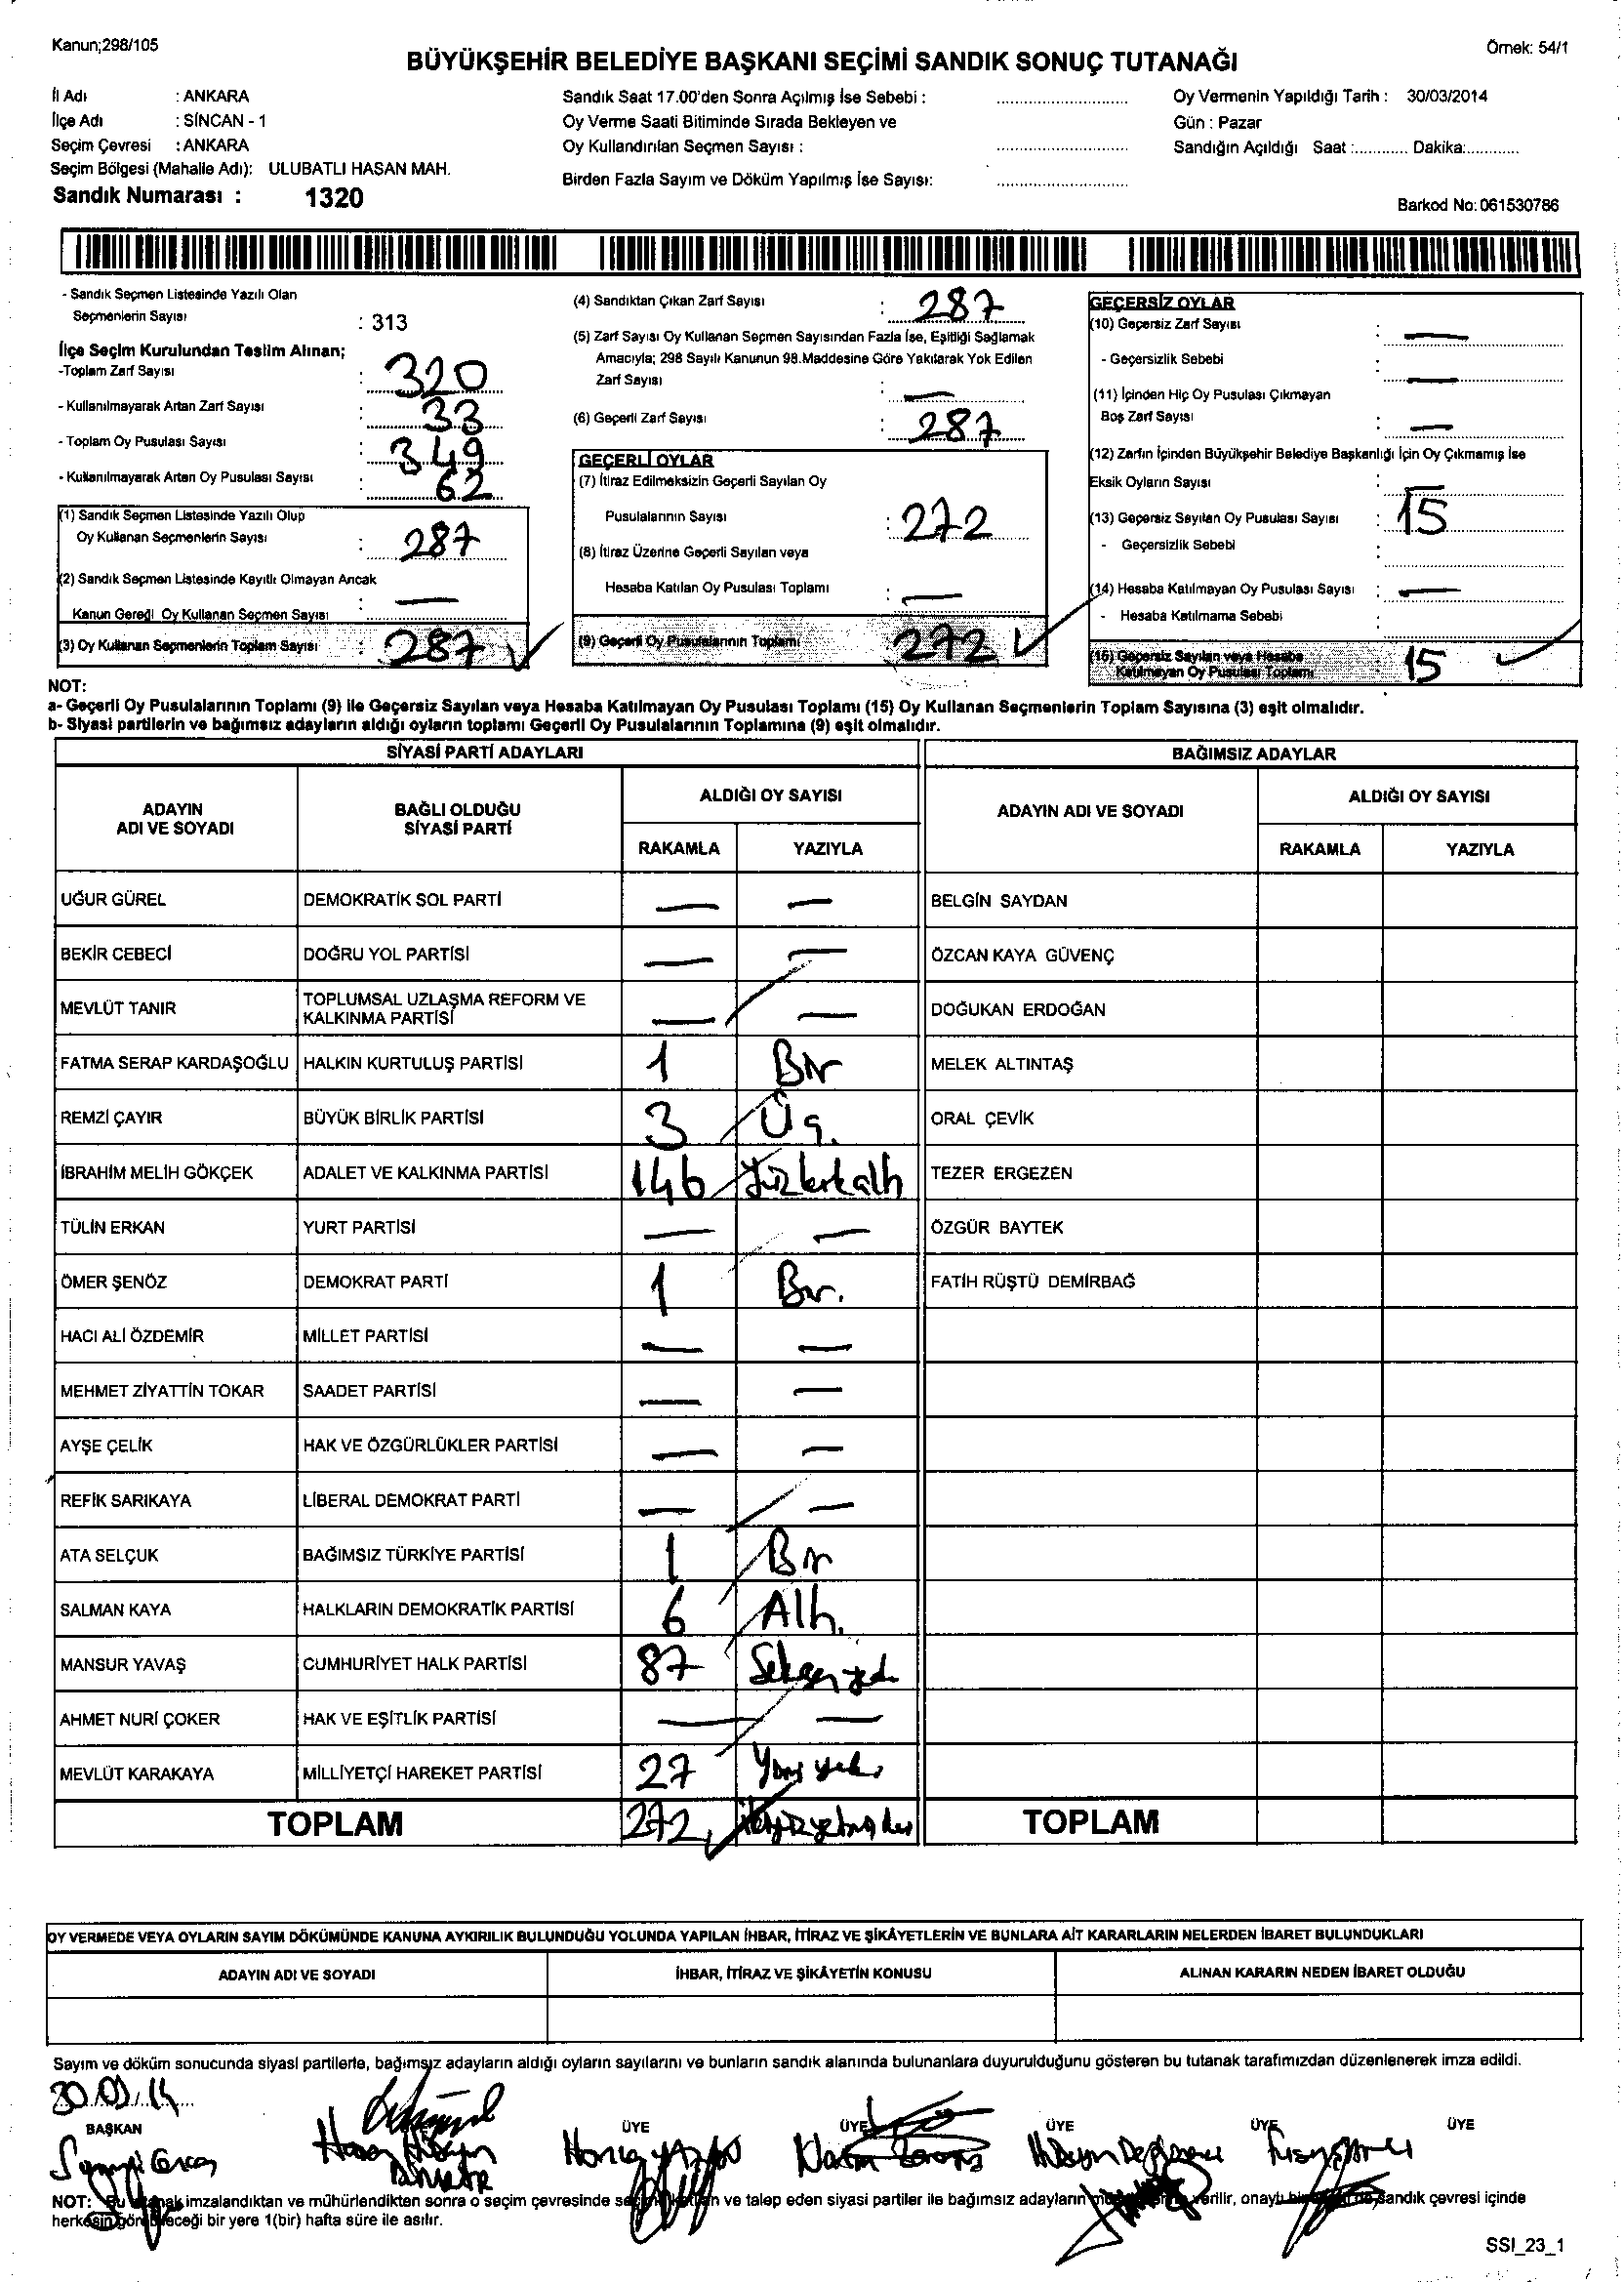 Kanun;298/105
Örnek: 54/1
BÜYÜKŞEHİR BELEDİYE BAŞKANI SEÇİMİ SANDIK SONUÇ TUTANAĞI
İl Adı : ANKARA
İlçe Adı : SİNCAN - 1
Seçim Çevresi : ANKARA
Seçim Bölgesi (Mahalle Adı): ULUBATLI HASAN MAH.
Sandık Numarası : 1320
Sandık Saat 17.00'den Sonra Açılmış İse Sebebi :
Oy Verme Saati Bitiminde Sırada Bekleyen ve
Oy Kullandırılan Seçmen Sayısı :
Birden Fazla Sayım ve Döküm Yapılmış İse Sayısı:
Oy Vermenin Yapıldığı Tarih : 30/03/2014
Gün : Pazar
Sandığın Açıldığı Saat :............ Dakika:............
Barkod No: 061530786
- Sandık Seçmen Listesinde Yazılı Olan
Seçmenlerin Sayısı : 313
İlçe Seçim Kurulundan Teslim Alınan;
-Toplam Zarf Sayısı : 320
- Kullanılmayarak Artan Zarf Sayısı : 33
- Toplam Oy Pusulası Sayısı : 349
- Kullanılmayarak Artan Oy Pusulası Sayısı : 62
(1) Sandık Seçmen Listesinde Yazılı Olup
Oy Kullanan Seçmenlerin Sayısı : 287
(2) Sandık Seçmen Listesinde Kayıtlı Olmayan Ancak
Kanun Gereği Oy Kullanan Seçmen Sayısı : —
(3) Oy Kullanan Seçmenlerin Toplam Sayısı : 287
(4) Sandıktan Çıkan Zarf Sayısı : 287
(5) Zarf Sayısı Oy Kullanan Seçmen Sayısından Fazla İse, Eşitliği Sağlamak
Amacıyla; 298 Sayılı Kanunun 98.Maddesine Göre Yakılarak Yok Edilen
Zarf Sayısı : —
(6) Geçerli Zarf Sayısı : 287
GEÇERLİ OYLAR
(7) İtiraz Edilmeksizin Geçerli Sayılan Oy
Pusulalarının Sayısı : 272
(8) İtiraz Üzerine Geçerli Sayılan veya
Hesaba Katılan Oy Pusulası Toplamı : —
(9) Geçerli Oy Pusulalarının Toplamı 272
GEÇERSİZ OYLAR
(10) Geçersiz Zarf Sayısı : —
- Geçersizlik Sebebi : —
(11) İçinden Hiç Oy Pusulası Çıkmayan
Boş Zarf Sayısı : —
(12) Zarfın İçinden Büyükşehir Belediye Başkanlığı İçin Oy Çıkmamış İse
Eksik Oyların Sayısı : —
(13) Geçersiz Sayılan Oy Pusulası Sayısı : 15
- Geçersizlik Sebebi :
(14) Hesaba Katılmayan Oy Pusulası Sayısı : —
- Hesaba Katılmama Sebebi :
(15) Geçersiz Sayılan veya Hesaba
Katılmayan Oy Pusulası Toplamı : 15
NOT:
a- Geçerli Oy Pusulalarının Toplamı (9) ile Geçersiz Sayılan veya Hesaba Katılmayan Oy Pusulası Toplamı (15) Oy Kullanan Seçmenlerin Toplam Sayısına (3) eşit olmalıdır.
b- Siyasi partilerin ve bağımsız adayların aldığı oyların toplamı Geçerli Oy Pusulalarının Toplamına (9) eşit olmalıdır.
SİYASİ PARTİ ADAYLARI
ADAYIN ADI VE SOYADI BAĞLI OLDUĞU SİYASİ PARTİ ALDIĞI OY SAYISI
RAKAMLA YAZIYLA
UĞUR GÜREL DEMOKRATİK SOL PARTİ — —
BEKİR CEBECİ DOĞRU YOL PARTİSİ — —
MEVLÜT TANIR TOPLUMSAL UZLAŞMA REFORM VE KALKINMA PARTİSİ — —
FATMA SERAP KARDAŞOĞLU HALKIN KURTULUŞ PARTİSİ 1 Bir
REMZİ ÇAYIR BÜYÜK BİRLİK PARTİSİ 3 Üç.
İBRAHİM MELİH GÖKÇEK ADALET VE KALKINMA PARTİSİ 146 Yüzkırkaltı
TÜLİN ERKAN YURT PARTİSİ — —
ÖMER ŞENÖZ DEMOKRAT PARTİ 1 Bir.
HACI ALİ ÖZDEMİR MİLLET PARTİSİ — —
MEHMET ZİYATTİN TOKAR SAADET PARTİSİ — —
AYŞE ÇELİK HAK VE ÖZGÜRLÜKLER PARTİSİ — —
REFİK SARIKAYA LİBERAL DEMOKRAT PARTİ — —
ATA SELÇUK BAĞIMSIZ TÜRKİYE PARTİSİ 1 Bir
SALMAN KAYA HALKLARIN DEMOKRATİK PARTİSİ 6 Altı.
MANSUR YAVAŞ CUMHURİYET HALK PARTİSİ 87 Seksenyedi
AHMET NURİ ÇOKER HAK VE EŞİTLİK PARTİSİ — —
MEVLÜT KARAKAYA MİLLİYETÇİ HAREKET PARTİSİ 27 Yirmi yedi
TOPLAM 272 ikiyüzyetmiş iki
BAĞIMSIZ ADAYLAR
ADAYIN ADI VE SOYADI ALDIĞI OY SAYISI
RAKAMLA YAZIYLA
BELGİN SAYDAN
ÖZCAN KAYA GÜVENÇ
DOĞUKAN ERDOĞAN
MELEK ALTINTAŞ
ORAL ÇEVİK
TEZER ERGEZEN
ÖZGÜR BAYTEK
FATİH RÜŞTÜ DEMİRBAĞ
TOPLAM
OY VERMEDE VEYA OYLARIN SAYIM DÖKÜMÜNDE KANUNA AYKIRILIK BULUNDUĞU YOLUNDA YAPILAN İHBAR, İTİRAZ VE ŞİKÂYETLERİN VE BUNLARA AİT KARARLARIN NELERDEN İBARET BULUNDUKLARI
ADAYIN ADI VE SOYADI İHBAR, İTİRAZ VE ŞİKÂYETİN KONUSU ALINAN KARARIN NEDEN İBARET OLDUĞU
Sayım ve döküm sonucunda siyasi partilerle, bağımsız adayların aldığı oyların sayılarını ve bunların sandık alanında bulunanlara duyurulduğunu gösteren bu tutanak tarafımızdan düzenlenerek imza edildi.
30.03.14
BAŞKAN ÜYE ÜYE ÜYE ÜYE ÜYE
NOT: Bu tutanak imzalandıktan ve mühürlendikten sonra o seçim çevresinde ve talep eden siyasi partiler ile bağımsız adayların verilir, onaylı sandık çevresi içinde
herkesin görebileceği bir yere 1(bir) hafta süre ile asılır.
SSI_23_1